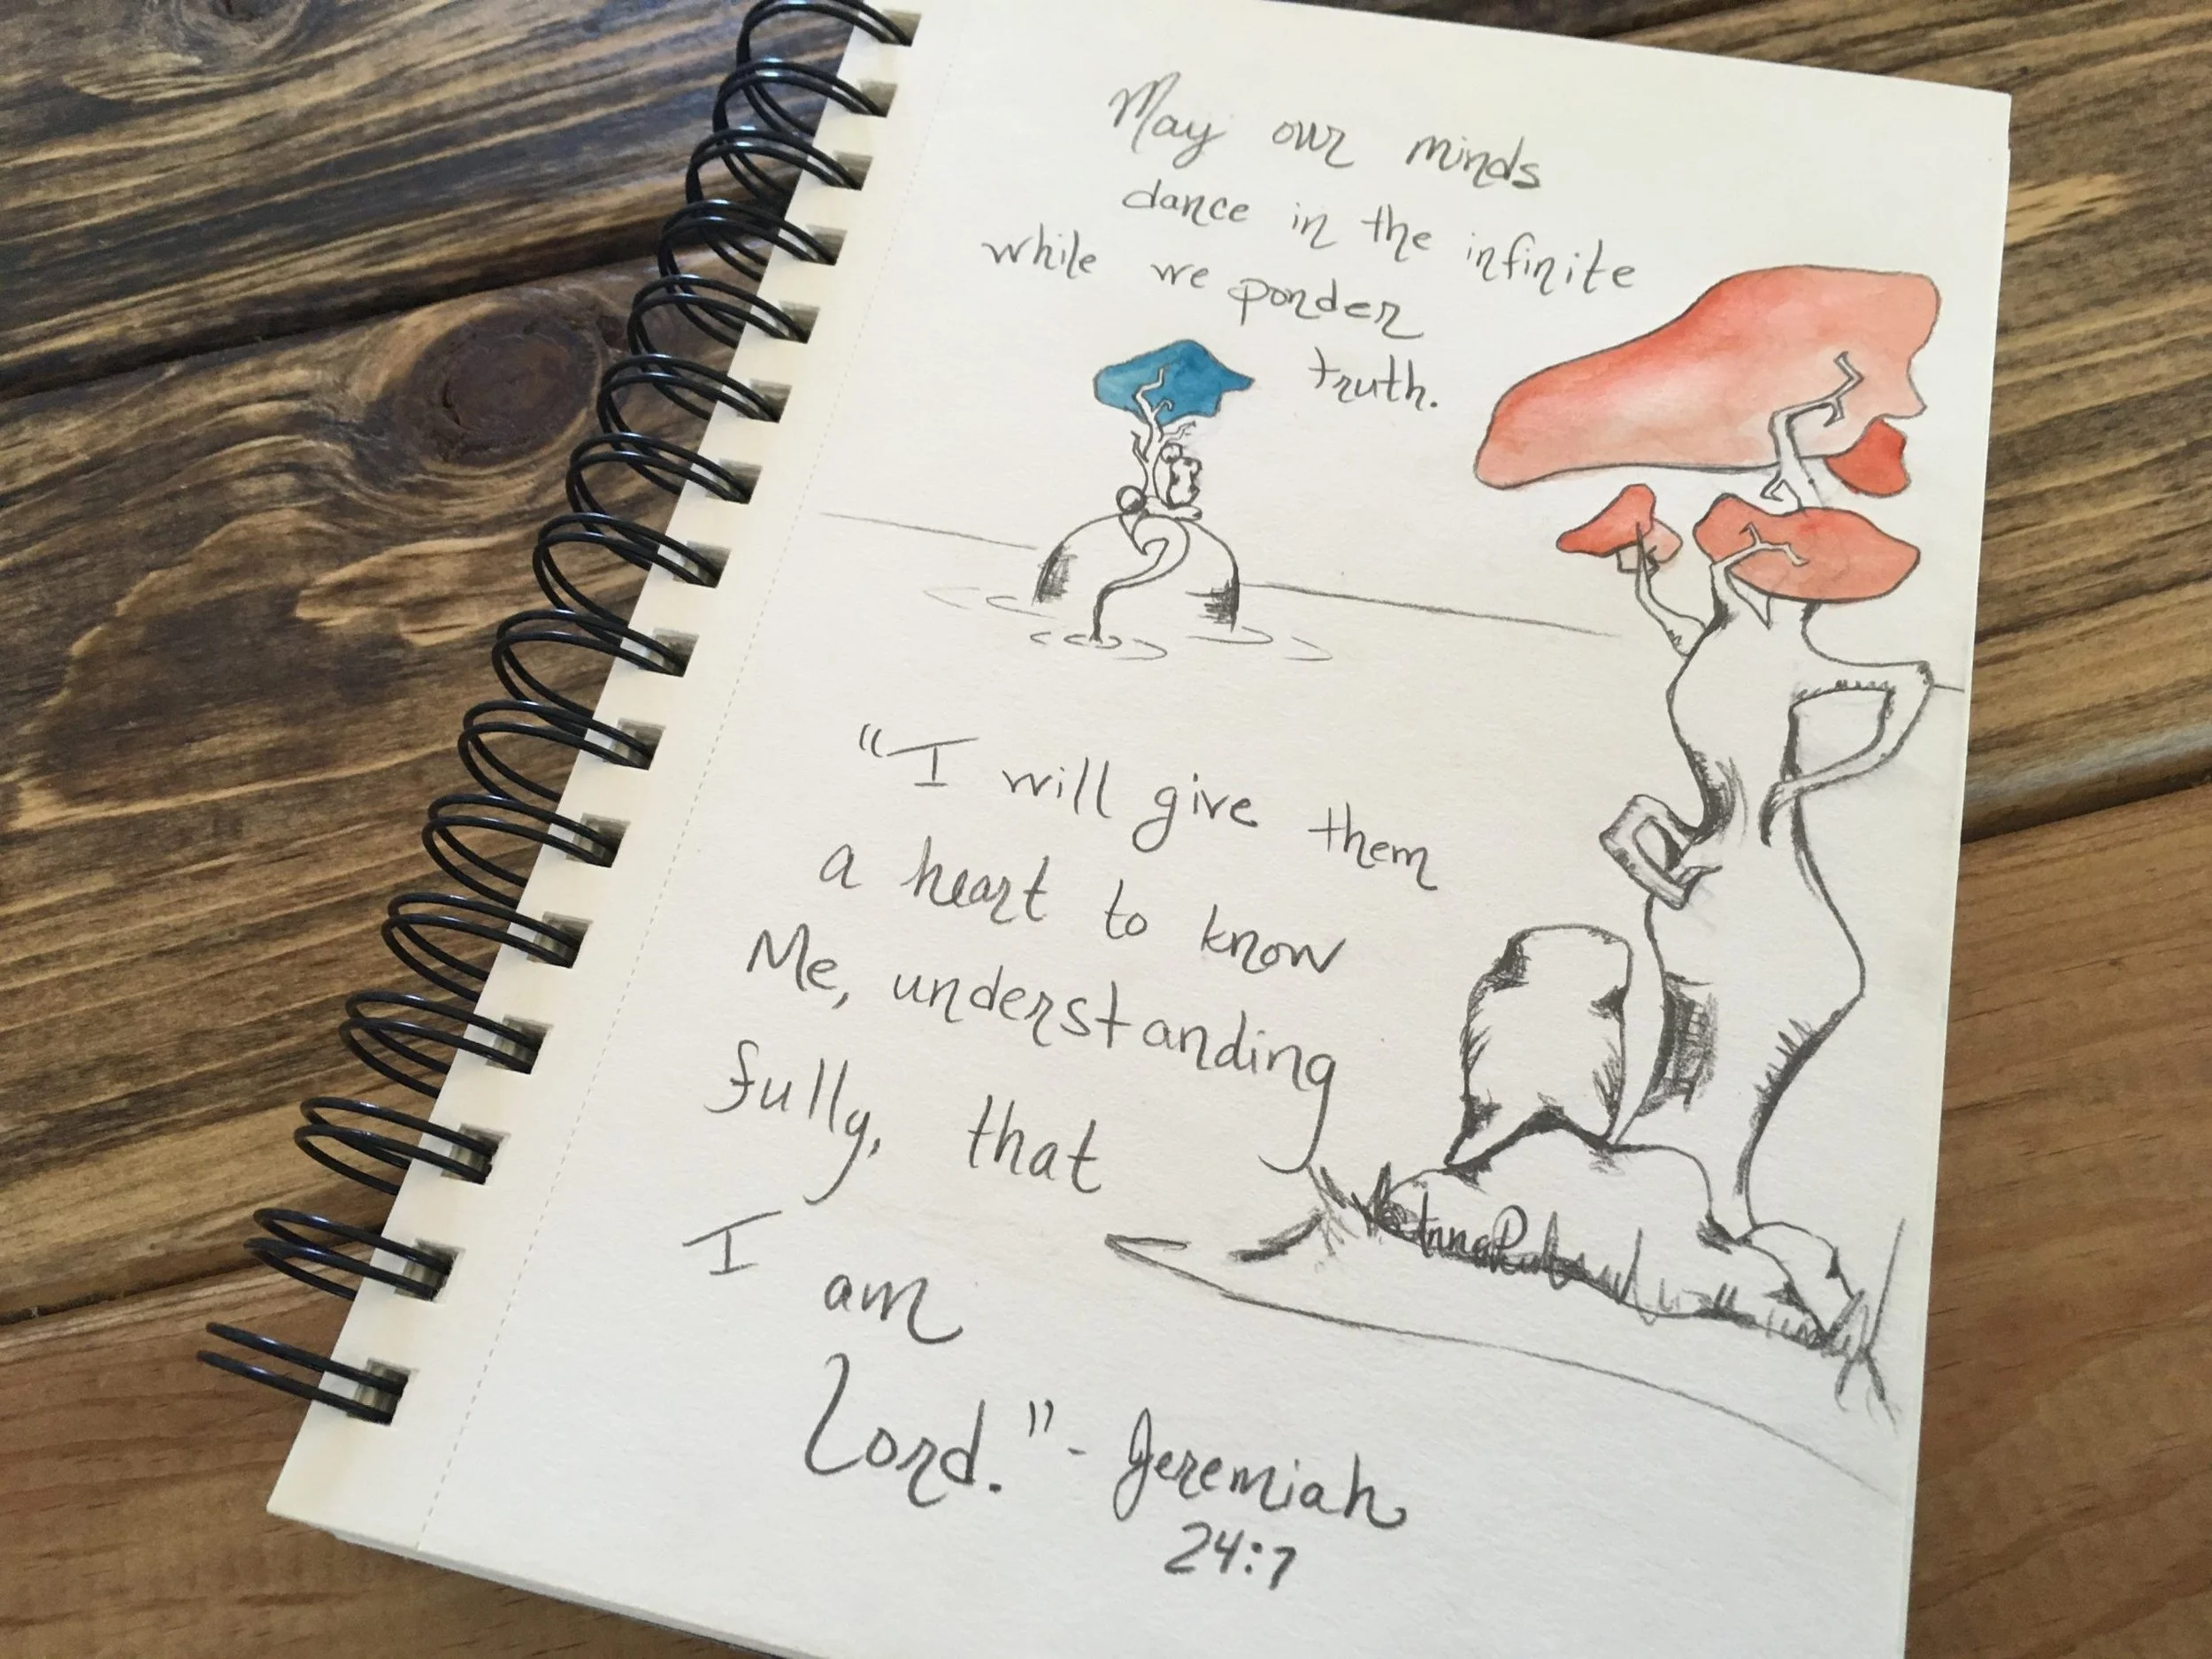 May our minds
dance in the infinite
while we ponder
truth.
"I will give them
a heart to know
Me, understanding
fully, that
I am
Lord." - Jeremiah
24:7